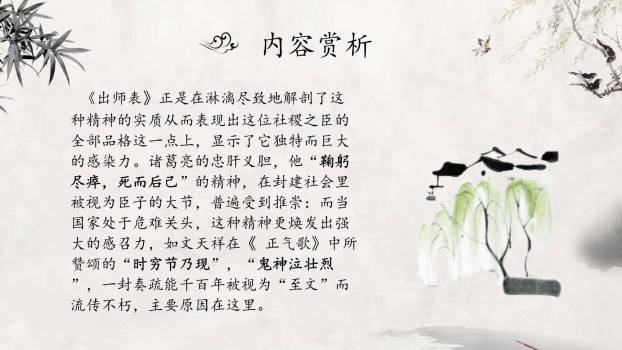 内容赏析
《出师表》正是在淋漓尽致地解剖了这
种精神的实质从而表现出这位社稷之臣的
全部品格这一点上，显示了它独特而巨大
的感染力。诸葛亮的忠肝义胆，他“鞠躬
尽瘁，死而后己”的精神，在封建社会里
被视为臣子的大节，普遍受到推崇：而当
国家处于危难关头，这种精神更焕发出强
大的感召力，如文天祥在《 正气歌》中所
赞颂的“时穷节乃现”，“鬼神泣壮烈
”，一封奏疏能千百年被视为“至文”而
流传不朽，主要原因在这里。